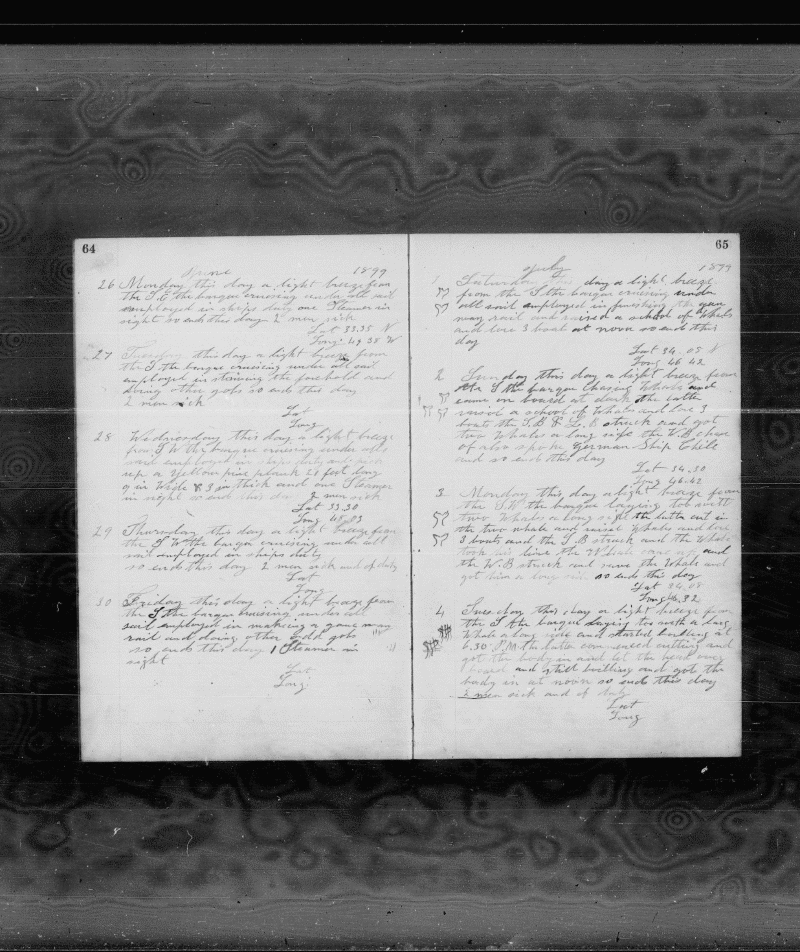 64
June 1899
26 Monday this day a light breeze from
the S.E. the barque cruising under all sail
employed in ships duty one Steamer in
sight so ends this day 2 men sick
Lat 33.35 N
Long 49 35 W
27 Tuesday this day a light breeze from
the S. the barque cruising under all sail
employed in stowing the forehold and
doing other gobs so ends this day
2 men sick
Lat
Long
28 Wednesday this day a light breeze
from S W the barque cruising under all
sail employed in ships duty and
up a Yellow pine plank 25 feet long
9 in Wide & 3 in thick and one Steamer
in sight so ends this day 2 men sick
Lat 33.30
Long 48.03
29 Thursday this day a light breeze from
the S W the barque cruising under all
sail employed in ships duty
so ends this day 2 men sick and of duty
Lat
Long
30 Friday this day a light breeze from
the S the barque cruising under all
sail employed in making a gane way
rail and doing other Odd gobs
so ends this day 1 Steamer in
sight
Lat
Long
65
July 1899
1 Saturday this day a light breeze
from the S the barque cruising under
all sail employed in finishing the gane
way rail and raised a school of Whals
and lore 3 boats at noon so ends this
day
Lat 34.05 N
Long 46 42
2 Sunday this day a light breeze from
the S the barque Chasing Whals and
came on board at dark the latter
raised a school of Whals and lore 3
boats the S.B. & L.B struck and got
two Whales a long side the W.B chase
of also spoke German Ship Chile
and so ends this day
Lat 34.30
Long 46.42
3 Monday this day a light breeze from
the S.W the barque laying too with
two Whales a long side the latter cut in
the two whale and raised Whales and lore
3 boats and the S.B struck and the Whale
took his line the Whale came up and
the W.B struck and save the Whale and
got him a long side so ends this day
Lat 34.08
Long 46.32
4 Tuesday this day a light breeze from
the S the barque laying too with a
Whale a long side and started boiling at
6.30 P.M the latter commenced cutting and
got the body in and let the head
and still boilling and got the
body in at noon so ends this day
2 men sick and of duty
Lat
Long